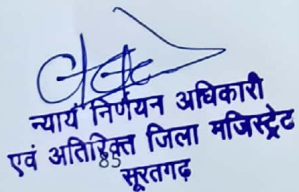 न्याय निर्णयन अधिकारी
एवं अतिरिक्त जिला मजिस्ट्रेट
85
सूरतगढ़